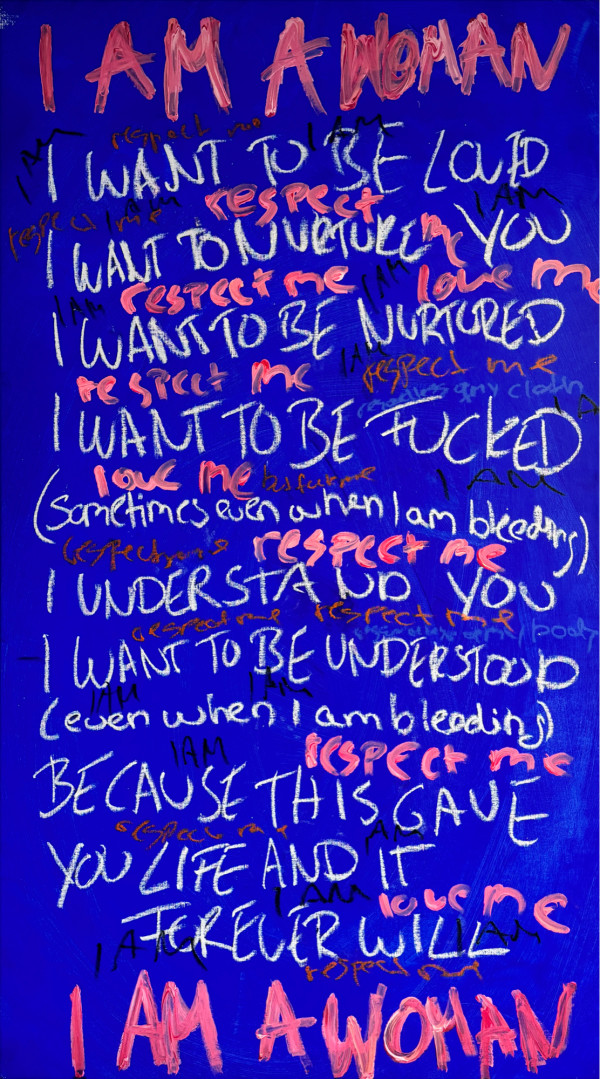 I AM A WOMAN
respect me I AM
I AM
I WANT TO BE LOVED
respect I AM
respect me I AM
I WANT TO NURTURE YOU
me
respect me I AM love me
I AM
I WANT TO BE NURTURED
I AM
respect me respect me
my cloth
I WANT TO BE FUCKED
love me I AM
(sometimes even when I am bleeding)
respect me respect me
I UNDERSTAND YOU
respect me respect me
body
I WANT TO BE UNDERSTOOD
I AM I AM
(even when I am bleeding)
I AM respect me
BECAUSE THIS GAVE
respect me AM
YOU LIFE AND IT
I AM love me
FOREVER WILL
I AM I AM
respect me
I AM A WOMAN